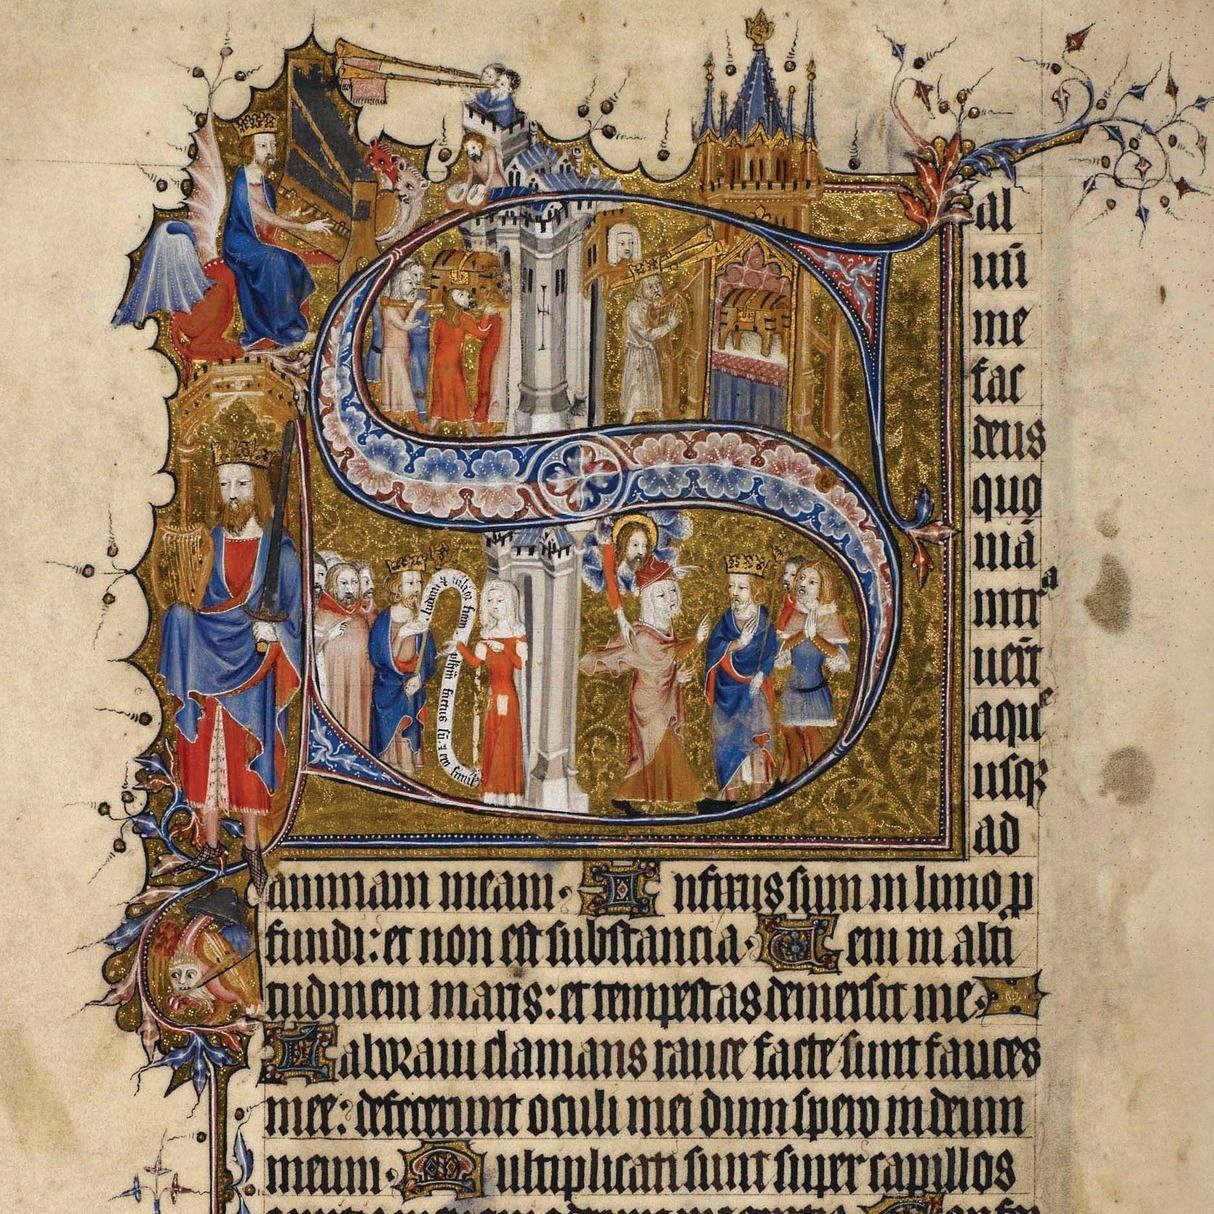 S
al
uū
me
fac
deus
quo
niā
intra
uert
aque
usqꝫ
ad
ludam & vilior fiam
factus sū. & ero humil
animam meam. Infixus sum in limo p
fundi: et non est substantia. Veni in alti
tudinem maris: et tempestas demersit me.
Laboraui clamans rauce facte sunt fauces
mee: defecerunt oculi mei dum spero in deum
meum. Multiplicati sunt super capillos